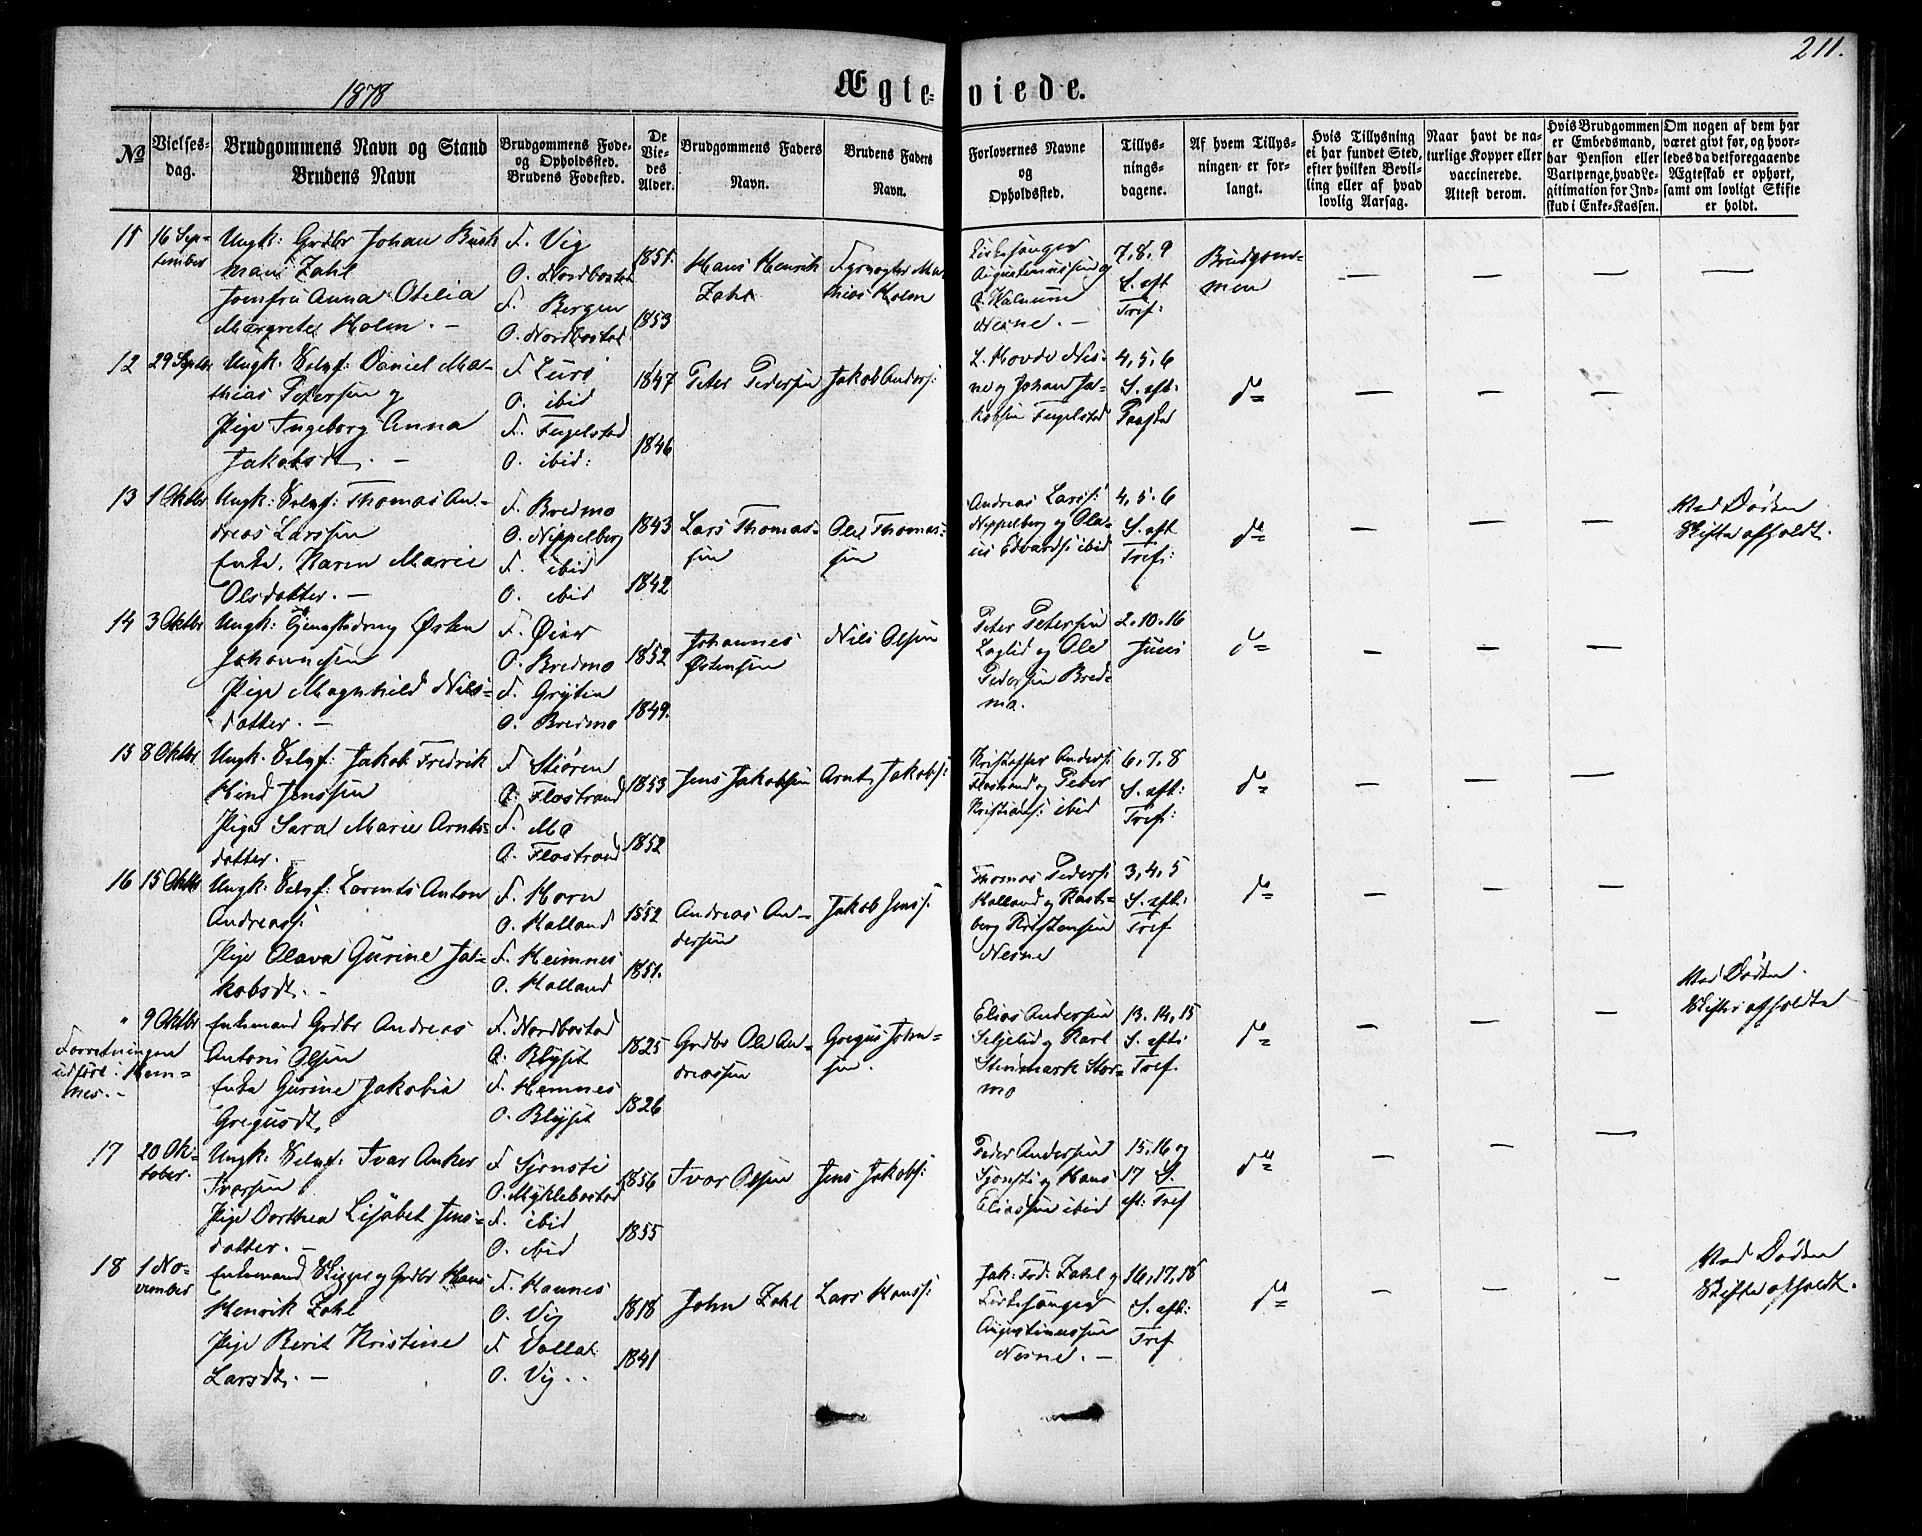 211.
1878
Ægte-viede.
No
Vielses-
dag.
Brudgommens Navn og Stand
Brudens Navn
Brudgommens Føde-
og Opholdssted.
Brudens Fødested.
De
Vie-
des
Alder.
Brudgommens Faders
Navn.
Brudens Faders
Navn.
Forlovernes Navne
og
Opholdssted.
Tillys-
nings-
dagene.
Af hvem Tillys-
ningen er for-
langt.
Hvis Tillysning
ei har fundet Sted,
efter hvilken Bevil-
ling eller af hvad
lovlig Aarsag.
Naar havt de na-
turlige Kopper eller
vaccinerede.
Attest derom.
Hvis Brudgommen
er Embedsmand,
har Pension eller
Vartpenge, hvad Le-
gitimation for Ind-
skud i Enke-Kassen.
Om nogen af dem har
været givt før, og hvor-
ledes da det foregaaende
Ægteskab er ophørt,
samt om lovligt Skifte
er holdt.
11
16 Sep-
tember
Ungk: Grdbr Johan Buch
mann Zahl
Jomfru Anna Otelia
Margrete Holm. —
F. Vig
O. Nordbostad
F. Bergen
O. Nordbostad
1851.
1853
Hans Henrik
Zahl
Fyrvogter Ma-
thias Holm
Kirkesanger
Augustinussen og
Nesne. —
7, 8, 9
S. eft
Tref:
Brudgom-
men
— — — —
12
29 Septbr
Ungk: Selvf: Daniel Ma-
thias Petersen og
Pige Ingeborg Anna
Jakobsdt. —
F. Lurø
O. ibid
F. Fugelstad
O. ibid:
1847
1846
Peter Pedersen
Jakob Anders:
L. Hovde Nes-
ne og Johan Ja-
kobsen Fugelstad
4, 5, 6
S. eft:
Paaske
do
— — —
13
1 Oktbr
Ungk: Selvf: Thomas An-
dreas Larssen
Enke, Karen Marie
Olsdatter. —
F. Bredmo
O. Nippelberg
F. ibid
O. ibid
1843
1842
Lars Thomas-
sen
Ole Thomas-
sen
Andreas Larss:
Nippelberg og Ola-
us Edvards: ibid
4, 5. 6
S. eft
Tref:
do
— — —
Ved Døden
Skifte afholdt.
14
3 Oktbr
Ungk: Østen
Johannesen
Pige Magnhild Nils-
datter. —
F. Øier
O. Bredmo
F. Grytin
O. Bredmo
1852
1849.
Johannes
Østensen
Nils Olsen
Peter Petersen
og Ole
Pedersen Bred-
mo.
2. 10. 16
Juni
do
— — —
15
8 Oktbr
Ungk. Selvf: Jakob Fredrik
Hind Jenssen
Pige Sara Marie Arnts-
datter.
F. Støren
O. Flostrand
F. Mo
O. Flostrand
1853
1852
Jens Jakobsen
Arnt Jakobs:
Kristoffer Anders:
Flostrand og Peter
Kristians: ibid
6, 7, 8
S. eft:
Tref:
do
— — —
16
15 Oktbr
Ungk: Selvf: Lorents Anton
Andreass:
Pige Olava Gurine Ja-
kobsdt. -
F. Horn
O. Halland
F. Heimnes
O. Halland
1852
1851.
Andreas An-
dersen
Jakob Jenss:
Thomas Peders:
Halland og
Kristensen
Nesne
3, 4, 5
S. eft:
Tref
do
— — —
"
9 Oktbr
Forretningen
udført i Hem-
nes. -
Enkemand Grdbr Andreas
Antoni Olsen
Enke Gurine Jakobia
Gregusdt.
F. Nordbostad
O. Blyset
F. Hemnes
O. Blyset
1825
1826
Grdbr Ole An-
dreassen
Gregus Johan-
sen.
Elias Andersen
Seljelid og Karl
Stenmark Stor-
mo
13. 14, 15
S. eft:
Tref.
do
— — —
Ved Døden.
Skifter afholdte
17
20 Ok-
tober.
Ungk: Selvf: Ivar Anker
Ivarsen
Pige Dorthea Lisabet Jens-
datter. —
F. Sjonsti
O. Myklebostad
F. ibid
O. ibid
1856
1855
Ivar Olsen
Jens Jakobs:
Peder Andersen
Sjonsti og Hans
Eliassen ibid
15. 16 og
17 S.
eft: Tref
do
— — —
18
1 No-
vember
Enkemand Skipper og Grdbr Hans
Henrik Zahl
Pige Berit Kristine
Larsdt. —
F. Havnes
O. Vig
F. Vallat
O. Vig. .
1818
1841
John Zahl
Lars Hanss:
Jak: Frd: Zahl og
Kirkesanger
Augustinussen
Nesne. —
16, 17, 18
S. eft:
Tref
do
— — —
Ved Døden
Skifte afholdt.